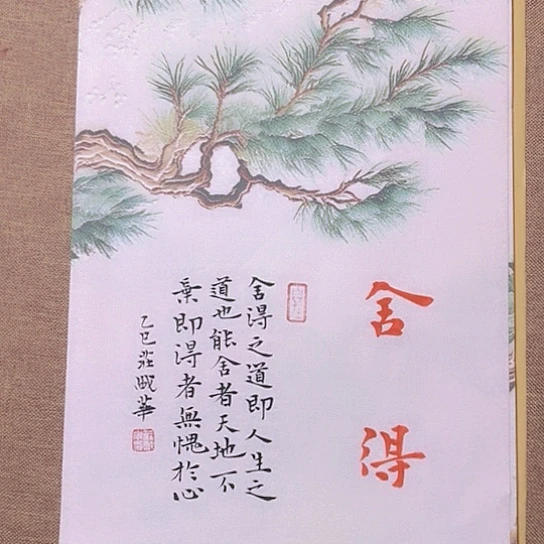 舍得
舍得之道即人生之
道也能舍者天地不
棄即得者無愧於心
乙巳莊曉華